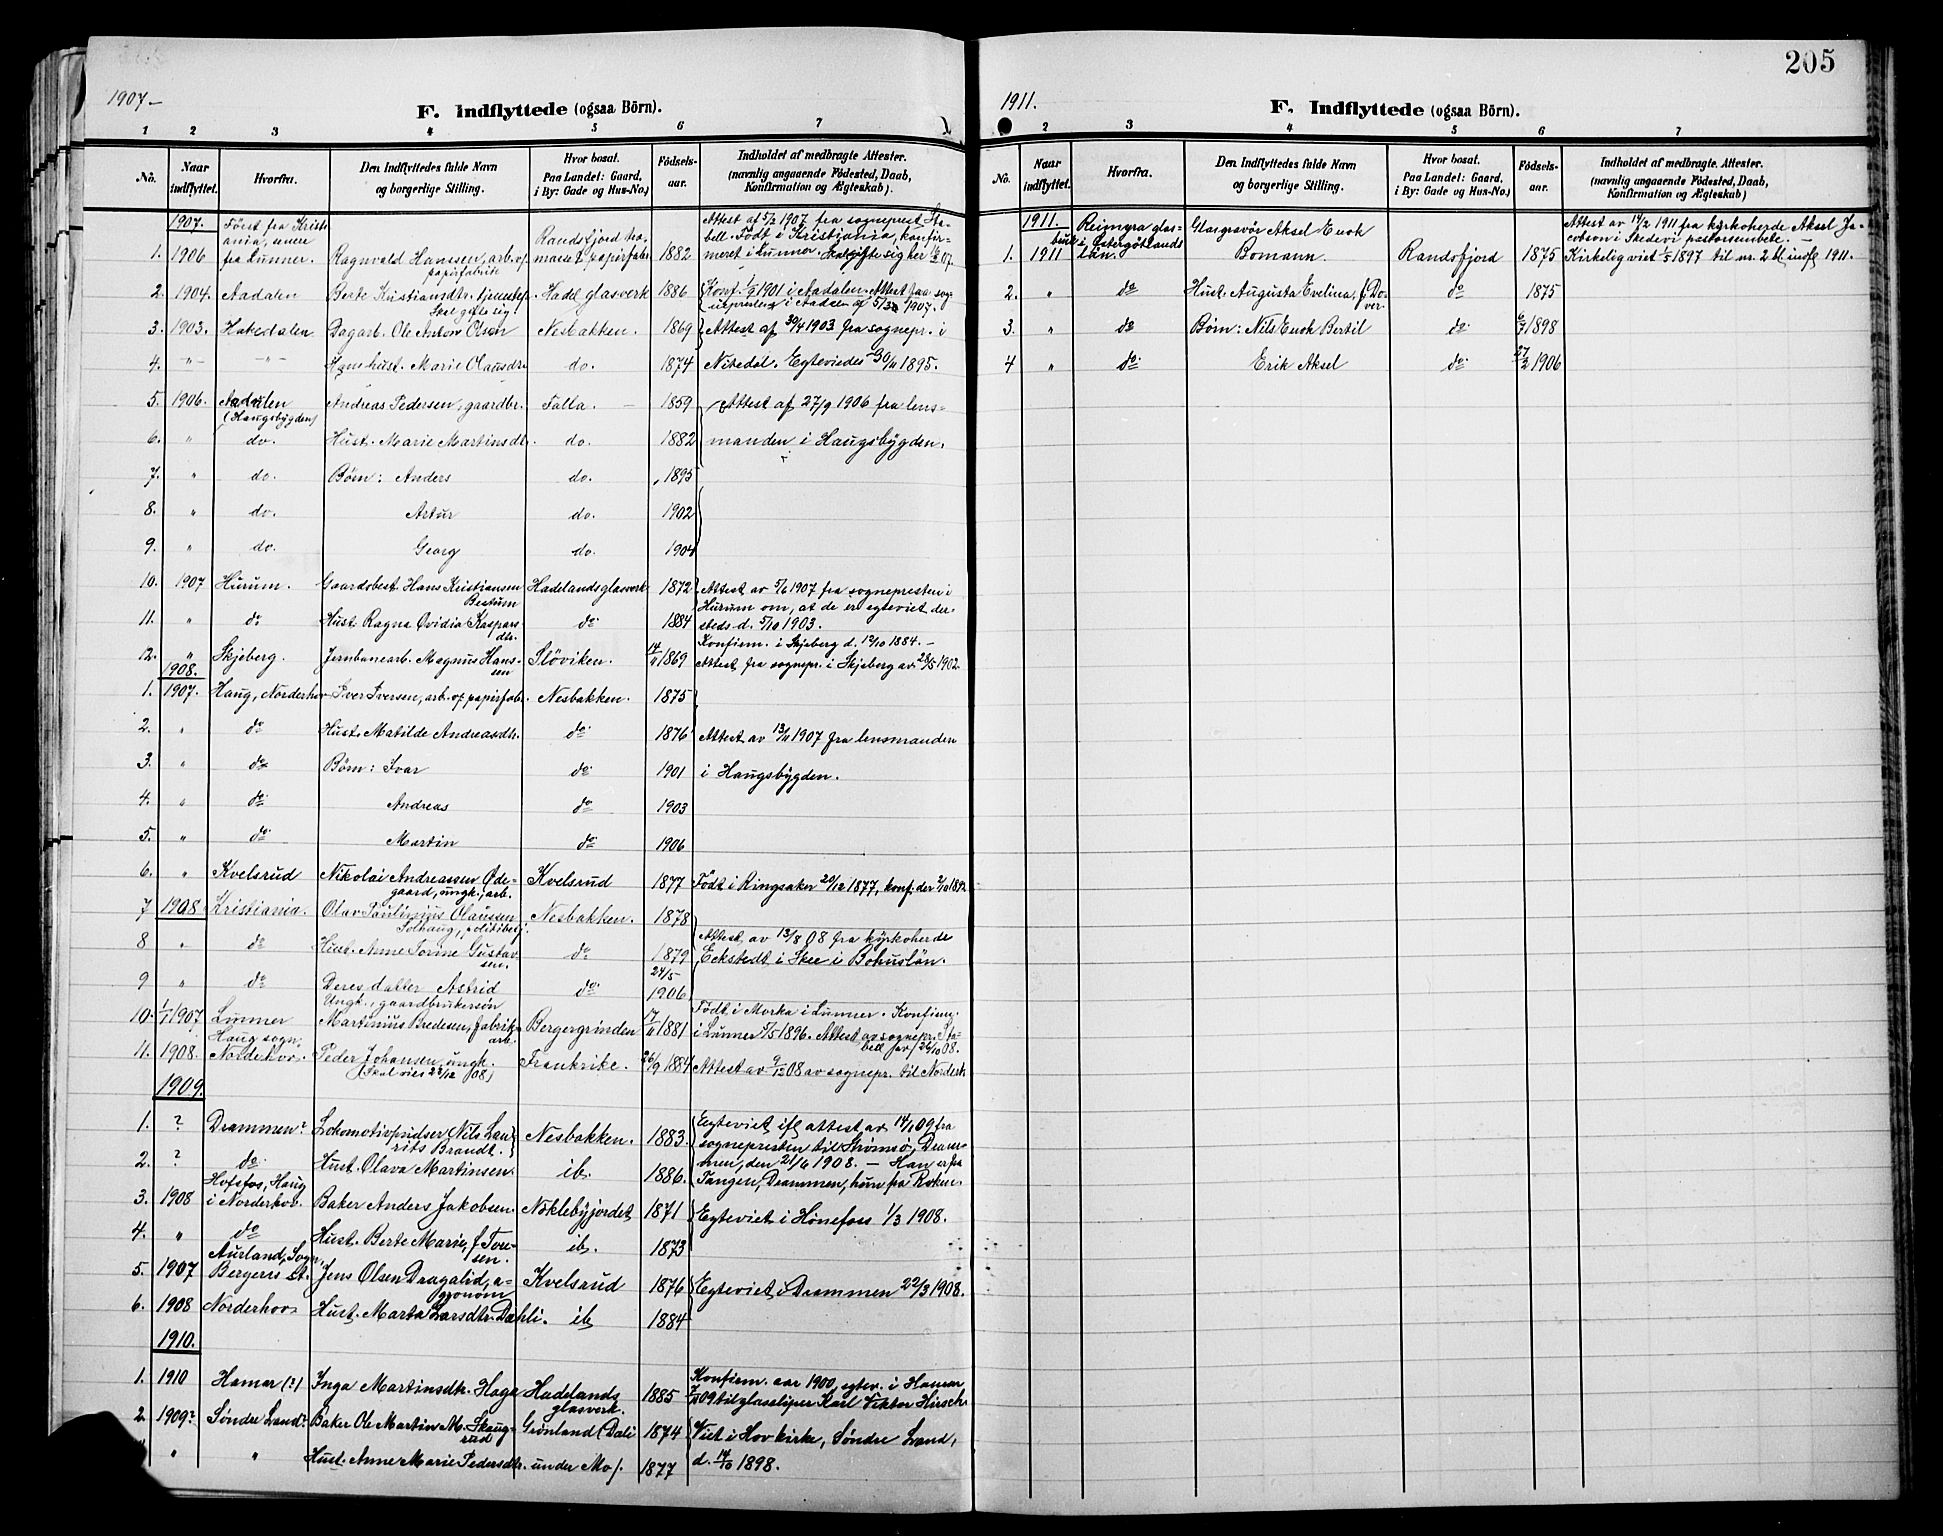 1907–
F. Indflyttede (ogsaa Börn).
1 2 3 4 5 6 7
No. Naar indflyttet. Hvorfra. Den Indflyttedes fulde Navn og borgerlige Stilling. Hvor bosat. Paa Landet: Gaard, i By: Gade og Hus-No.) Födsels-aar. Indholdet af medbragte Attester. (navnlig angaaende Födested, Daab, Konfirmation og Ægteskab).
1907. Først fra Kristiania, senere fra Lunner.
1. 1906 Ragnvald Hanssen, arb. v/ papirfabrik Randsfjord træmasse & papirfabr. 1882 Attest af 5/2 1907 fra sogneprest Stabell. Født i Kristiania, konfirmeret i Lunner. Skal gifte sig her
2. 1904. Aadalen Berte Kristiansdtr. tjenestep. Skal gifte sig! Hadel. glasverk 1886 Konf. 1901 i Aadalen. Attest fra sognepresten i Aadalen af 1907.
3. 1903. Hakedalen Dagarb. Ole Anton Olsen Nesbakken. 1869 Attest af 30/4 1903 fra sognepr. i
4. –"– –"– Hans hust. Marie Olausdtr. do. 1874 Nitedal. Egteviedes 30/11 1895.
5. 1906. Aadalen (Haugsbygden) Andreas Pedersen, gaardbr. Falla. 1859 Attest af 27/9 1906 fra lens-
6. " do. Hust. Marie Martinsdtr. do. 1882 manden i Haugsbygden.
7. " do. Børn: Anders do. 1895
8. " do. Artur do. 1902
9. " do. Georg do. 1904
10. 1907 Hurum. Gaardsbest. Hans Kristiansen Bestum Hadelandsglasverk 1872 Attest av 5/6 1907 fra sognepresten i
11. " do Hust. Ragna Ovidia Kaspardtr. do 1884 Hurum om, at de er egteviet dersteds d. 5/10 1903.
12. " Skjeberg. Jernbanearb. Magnus Hanssen Sløviken. 14/11 1869 Konfirm. i Skjeberg d. 12/10 1884. – Attest fra sognepr. i Skjeberg av 28/5 1902
1908.
1. 1907. Haug, Norderhov Iver Iversen, arb. v/ papirfabr. Nesbakken. 1875
2. " do Hust. Matilde Andreasdtr. do 1876 Attest av 13/11 1907 fra lensmanden
3. " do Børn: Ivar do 1901 i Haugsbygden.
4. " do Andreas do 1903
5. " do Martin do 1906
6. " Kvelsrud Nikolai Andreassen Ødegaard, ungk., arb. Kvelsrud 1877 Født i Ringsaker 20/12 1877, konf. der 2/10 1892
7 1908 Kristiania. Olav Paulinius Olaussen Solhaug, politibetj. Nesbakken. 1878
8 " do Hust. Anne Tomine Gustavsen. do 1879 Attest av 13/8 08 fra kyrkoherde Eckstedt i Skee i Bohuslän.
9 " do Deres datter Astrid do 24/5 1906.
10. 1/1 1907 Lunner Ungk., gaardbrukersøn Martinius Bredesen, fabrikarb. Bergergrinden 17/11 1881 Født i Morka i Lunner. Konfirm. i Lunner 1896. Attest av sognepr. Stabell av 26/10 08.
11. 1908. Haug sogn, Norderhov. Peder Johansen, ungk. (Skal vies 22/12 08) Frankrike. 26/9 1884 Attest av 9/12 08 av sognepr. til Norderh.
1909.
1. ? Drammen? Lokomotivpudser Nils Lauritz Brandt. Nesbakken. 1883. Egteviet ifl. attest av 14/1 09 fra sognepresten til Strømsø, Dram-
2. ? do. Hust. Olava Martinsen. ib. 1886. men, den 21/6 1908. – Han er fra Tangen, Drammen, hun fra Røken.
3. 1908 Hofsfos, Haug i Norderhov. Baker Anders Jakobsen. Noklebyjordet 1871 Egteviet i Hønefoss 1/3 1908.
4. " do Hust. Berte Marie, f. Iversen. ib. 1873
5. 1907 Aurland, Sogn, Bergens st. Jens Olsen Dragalid, agronom Kvelsrud 1876 Egteviet i Drammen 22/3 1908.
6. 1908 Norderhov Hust. Marta Larsdtr. Dæhli. ib 1884
1910.
1. 1910 Hamar (?) Inga Martinsdtr. Haga Hadelands glasverk. 1885 Konfirm. aar 1900, egtev. i Hamar 09 til glassliper Karl Viktor Hirsch.
2. 1909? Søndre Land? Baker Ole Martin M. Skaugrud Grønland (Dali 1874 Viet i Hov kirke, Søndre Land,
" " Hust. Anne Marie Pedersdtr. under Mo). 1877 d. 14/10 1898.
205
1911.
F. Indflyttede (ogsaa Börn).
2 3 4 5 6 7
No. Naar indflyttet. Hvorfra. Den Indflyttedes fulde Navn og borgerlige Stilling. Hvor bosat. Paa Landet: Gaard, i By: Gade og Hus-No.) Födsels-aar. Indholdet af medbragte Attester. (navnlig angaaende Födested, Daab, Konfirmation og Ægteskab)
1911.
1. 1911 Reimyra glasbruk i Östergötlands län. Glasgravör Aksel Enok Bomann. Randsfjord 1875 Attest av 14/2 1911 fra kyrkoherde Aksel Jacobson i Skedevi pastorsembete. – Kirkelig viet 1/5 1897 til nr. 2 bl. indfl. 1911.
2. " do Hust. Augusta Evelina, f. Dover. do 1875
3. " do Børn: Nils Enok Bertil do 6/7 1898
4 " do Erik Aksel do. 27/2 1906